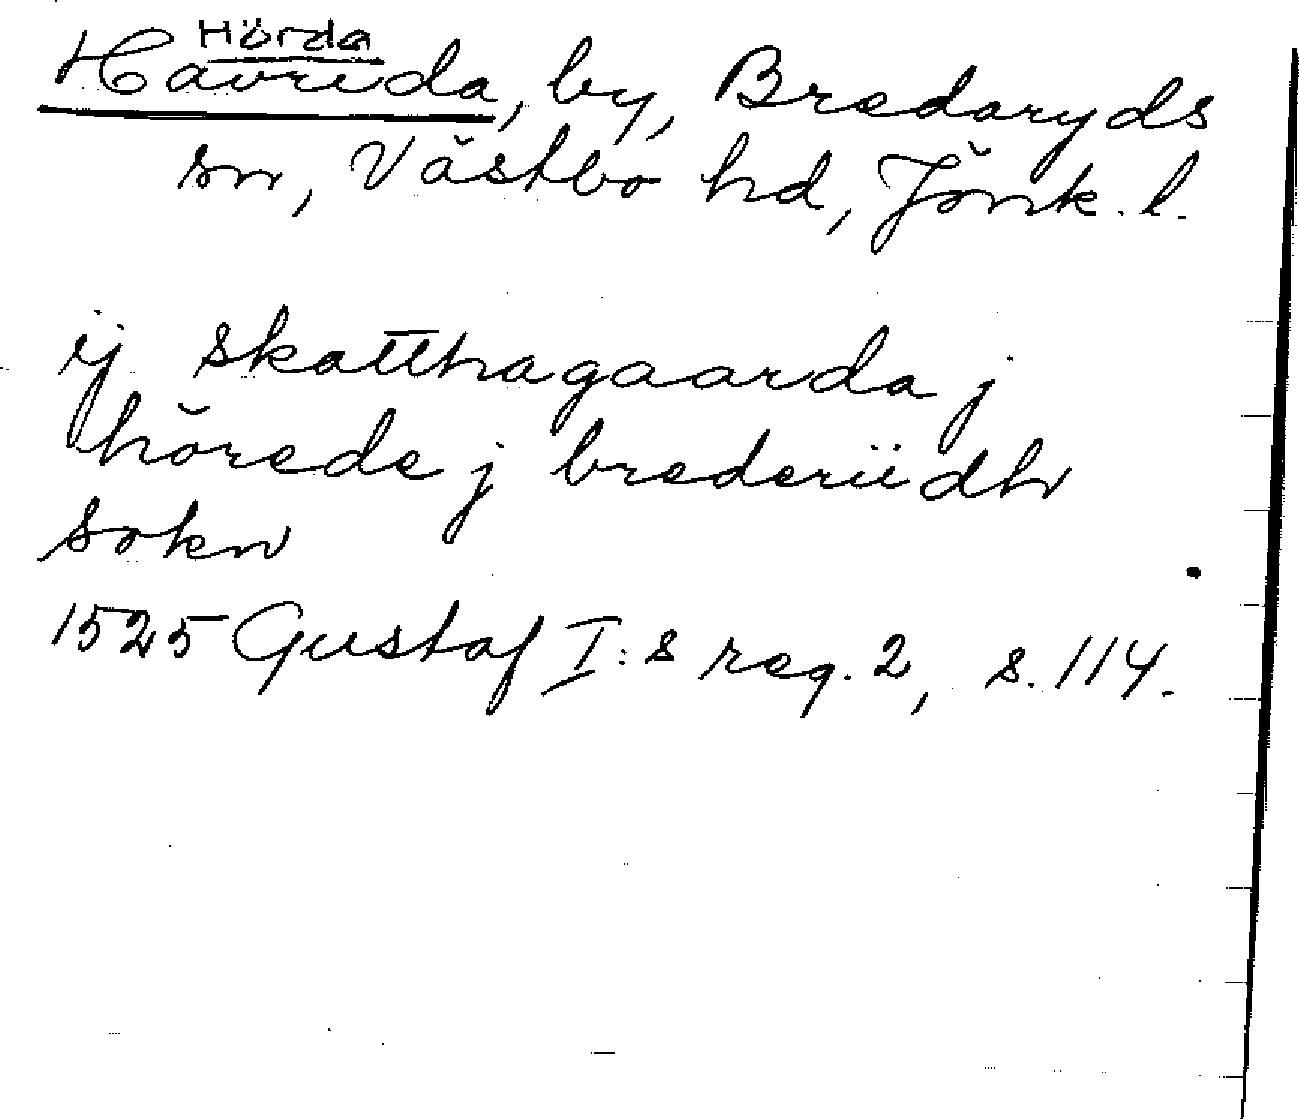 Hörda
Havreda, by, Bredaryds
sn, Västbo hd, Jönk. l.
ij skatthagaarda j
hörede j brederiidh
sokn
1525 Gustaf I:s reg. 2, s. 114.